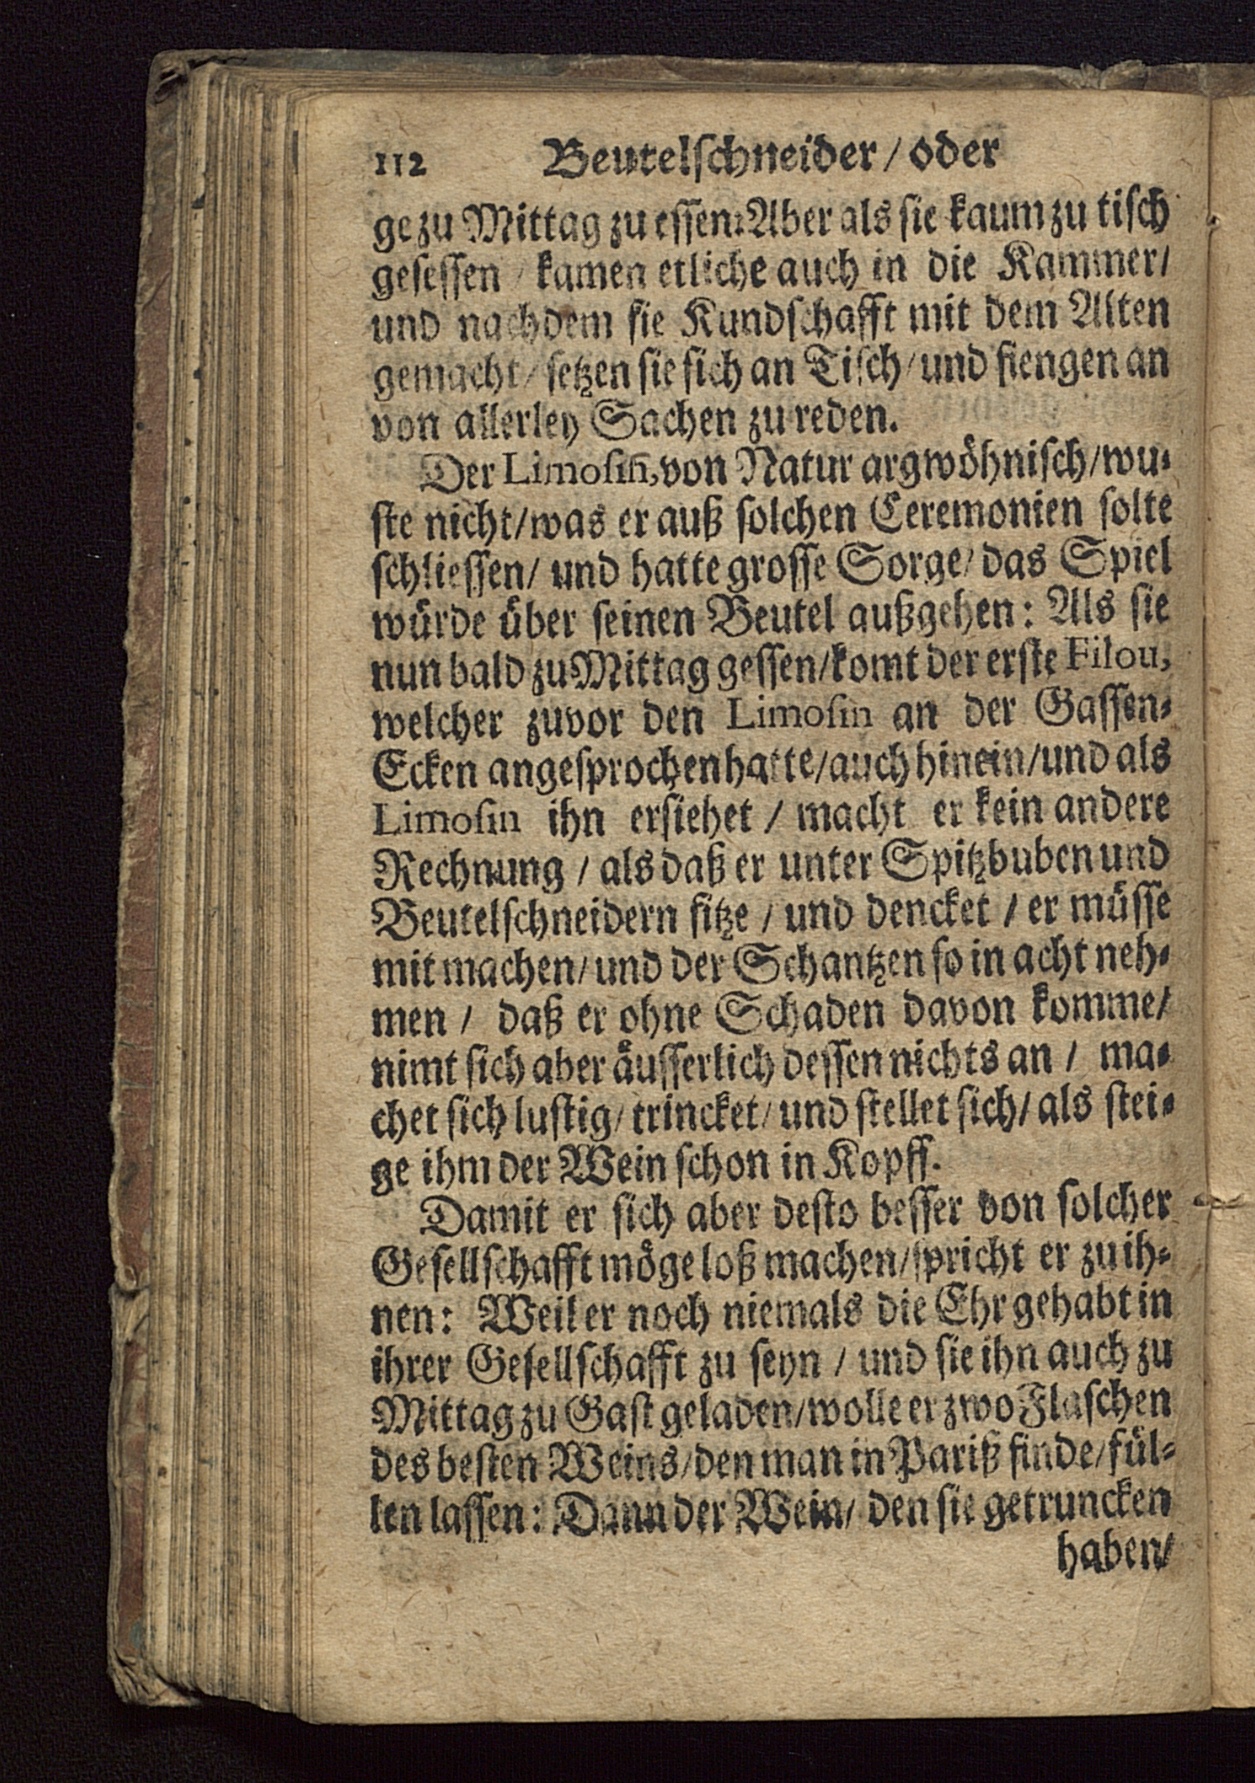 112 Beutelſchneider / oder
ge zu Mittag zu eſſen: Aber als ſie kaum zu tiſch
geſeſſen / kamen etliche auch in die Kammer /
und nachdem ſie Kundſchafft mit dem Alten
gemacht / ſetzen ſie ſich an Tiſch / und fiengen an
von allerley Sachen zu reden.
Der Limoſin, von Natur argwöhniſch / wu-
ſte nicht / was er auß ſolchen Ceremonien ſolte
ſchlieſſen / und hatte groſſe Sorge / das Spiel
würde über ſeinen Beutel außgehen: Als ſie
nun bald zu Mittag geſſen / komt der erſte Filou,
welcher zuvor den Limoſin an der Gaſſen-
Ecken angeſprochen hatte / auch hinein / und als
Limoſin ihn erſiehet / macht er kein andere
Rechnung / als daß er unter Spitzbuben und
Beutelſchneidern ſitze / und dencket / er müſſe
mit machen / und der Schantzen ſo in acht neh-
men / daß er ohne Schaden davon komme /
nimt ſich aber äuſſerlich deſſen nichts an / ma-
chet ſich luſtig / trincket / und ſtellet ſich / als ſtei-
ge ihm der Wein ſchon in Kopff.
Damit er ſich aber deſto beſſer von ſolcher
Geſellſchafft möge loß machen / ſpricht er zu ih-
nen: Weil er noch niemals die Ehr gehabt in
ihrer Geſellſchafft zu ſeyn / und ſie ihn auch zu
Mittag zu Gaſt geladen / wolle er zwo Flaſchen
des beſten Weins / den man in Pariß finde / fül-
len laſſen: Dann der Wein / den ſie getruncken
haben /